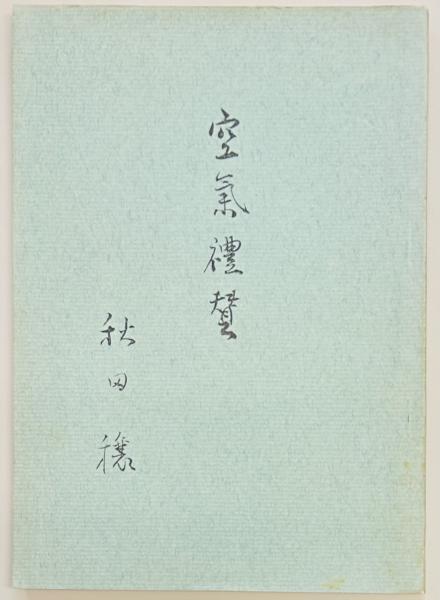 空氣禮讃
秋田穣